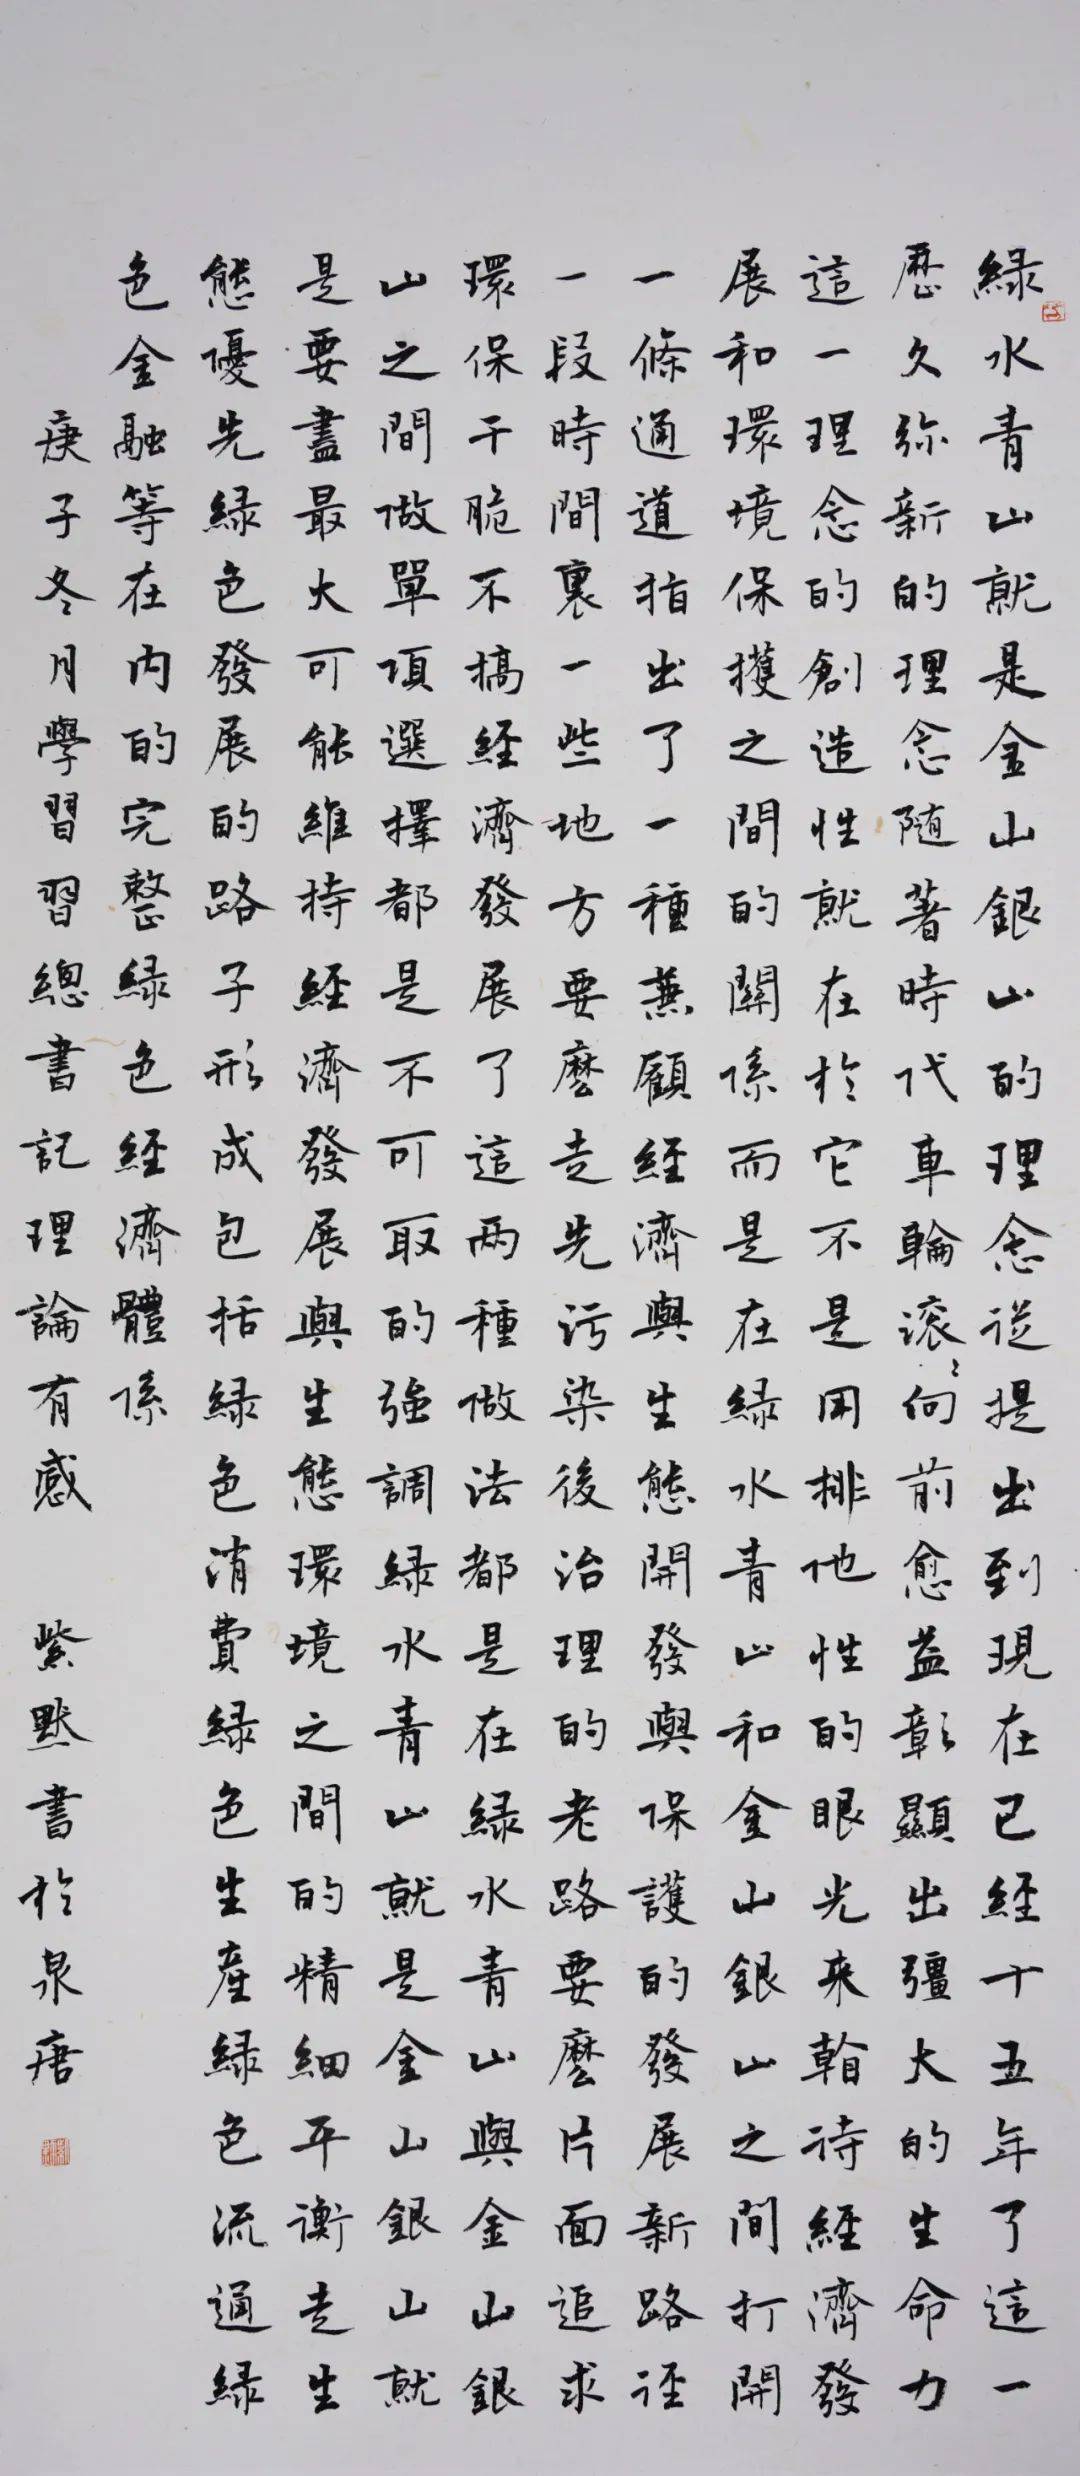 綠水青山就是金山銀山的理念從提出到現在已經十五年了這一
歷久弥新的理念随著時代車輪滚〻向前愈益彰顯出彊大的生命力
這一理念的創造性就在於它不是用排他性的眼光来看待經濟發
展和環境保護之間的關係而是在綠水青山和金山銀山之間打開
一條通道指出了一種兼顧經濟與生態開發與保護的發展新路徑
一段時間裏一些地方要麼走先污染後治理的老路要麼片面追求
環保干脆不搞經濟發展了這兩種做法都是在綠水青山與金山銀
山之間做單項選擇都是不可取的強調綠水青山就是金山銀山就
是要盡最大可能維持經濟發展與生態環境之間的精細平衡走生
態優先綠色發展的路子形成包括綠色消費綠色生產綠色流通綠
色金融等在內的完整綠色經濟體係
庚子冬月學習習總書記理論有感 紫默書於泉唐